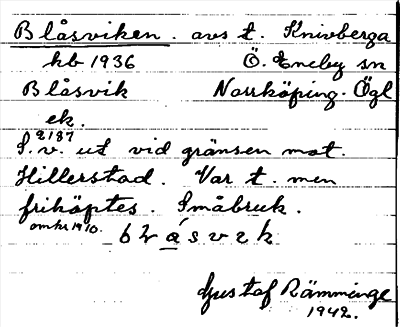 Blåsviken. avs t. Knivberga
kb 1936 Ö. Eneby sn
Blåsvik Norrköping. Ögl
ek.
2187
S.v. ut vid gränsen mot.
Hillerstad. Var t. men
friköptes. Småbruk.
omkr 1910. blåsvek
Gustaf Rämminge
1942.